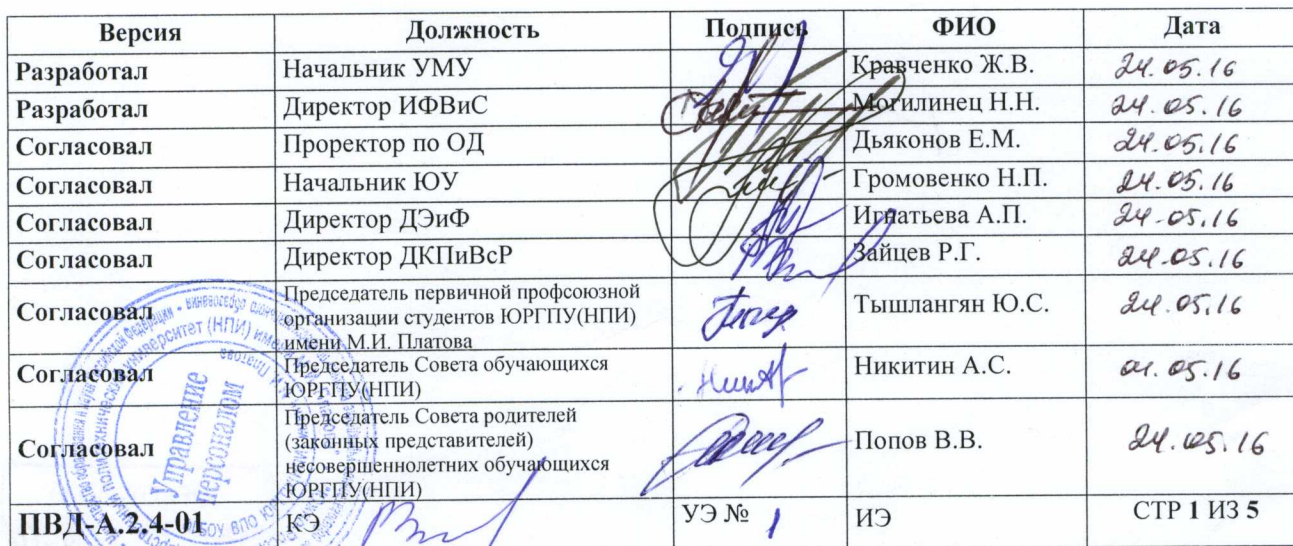 Версия Должность Подпись ФИО Дата
Разработал Начальник УМУ Кравченко Ж.В. 24.05.16
Разработал Директор ИФВиС Могилинец Н.Н. 24.05.16
Согласовал Проректор по ОД Дьяконов Е.М. 24.05.16
Согласовал Начальник ЮУ Громовенко Н.П. 24.05.16
Согласовал Директор ДЭиФ Игнатьева А.П. 24.05.16
Согласовал Директор ДКПиВсР Зайцев Р.Г. 24.05.16
Согласовал Председатель первичной профсоюзной
организации студентов ЮРГПУ(НПИ)
имени М.И. Платова Тышлангян Ю.С. 24.05.16
Согласовал Председатель Совета обучающихся
ЮРГПУ(НПИ) Никитин А.С. 05.16
Согласовал Председатель Совета родителей
(законных представителей)
несовершеннолетних обучающихся
ЮРГПУ(НПИ) Попов В.В. 24.05.16
ПВД-А.2.4-01 КЭ УЭ № 1 ИЭ СТР 1 ИЗ 5
Управление
персоналом